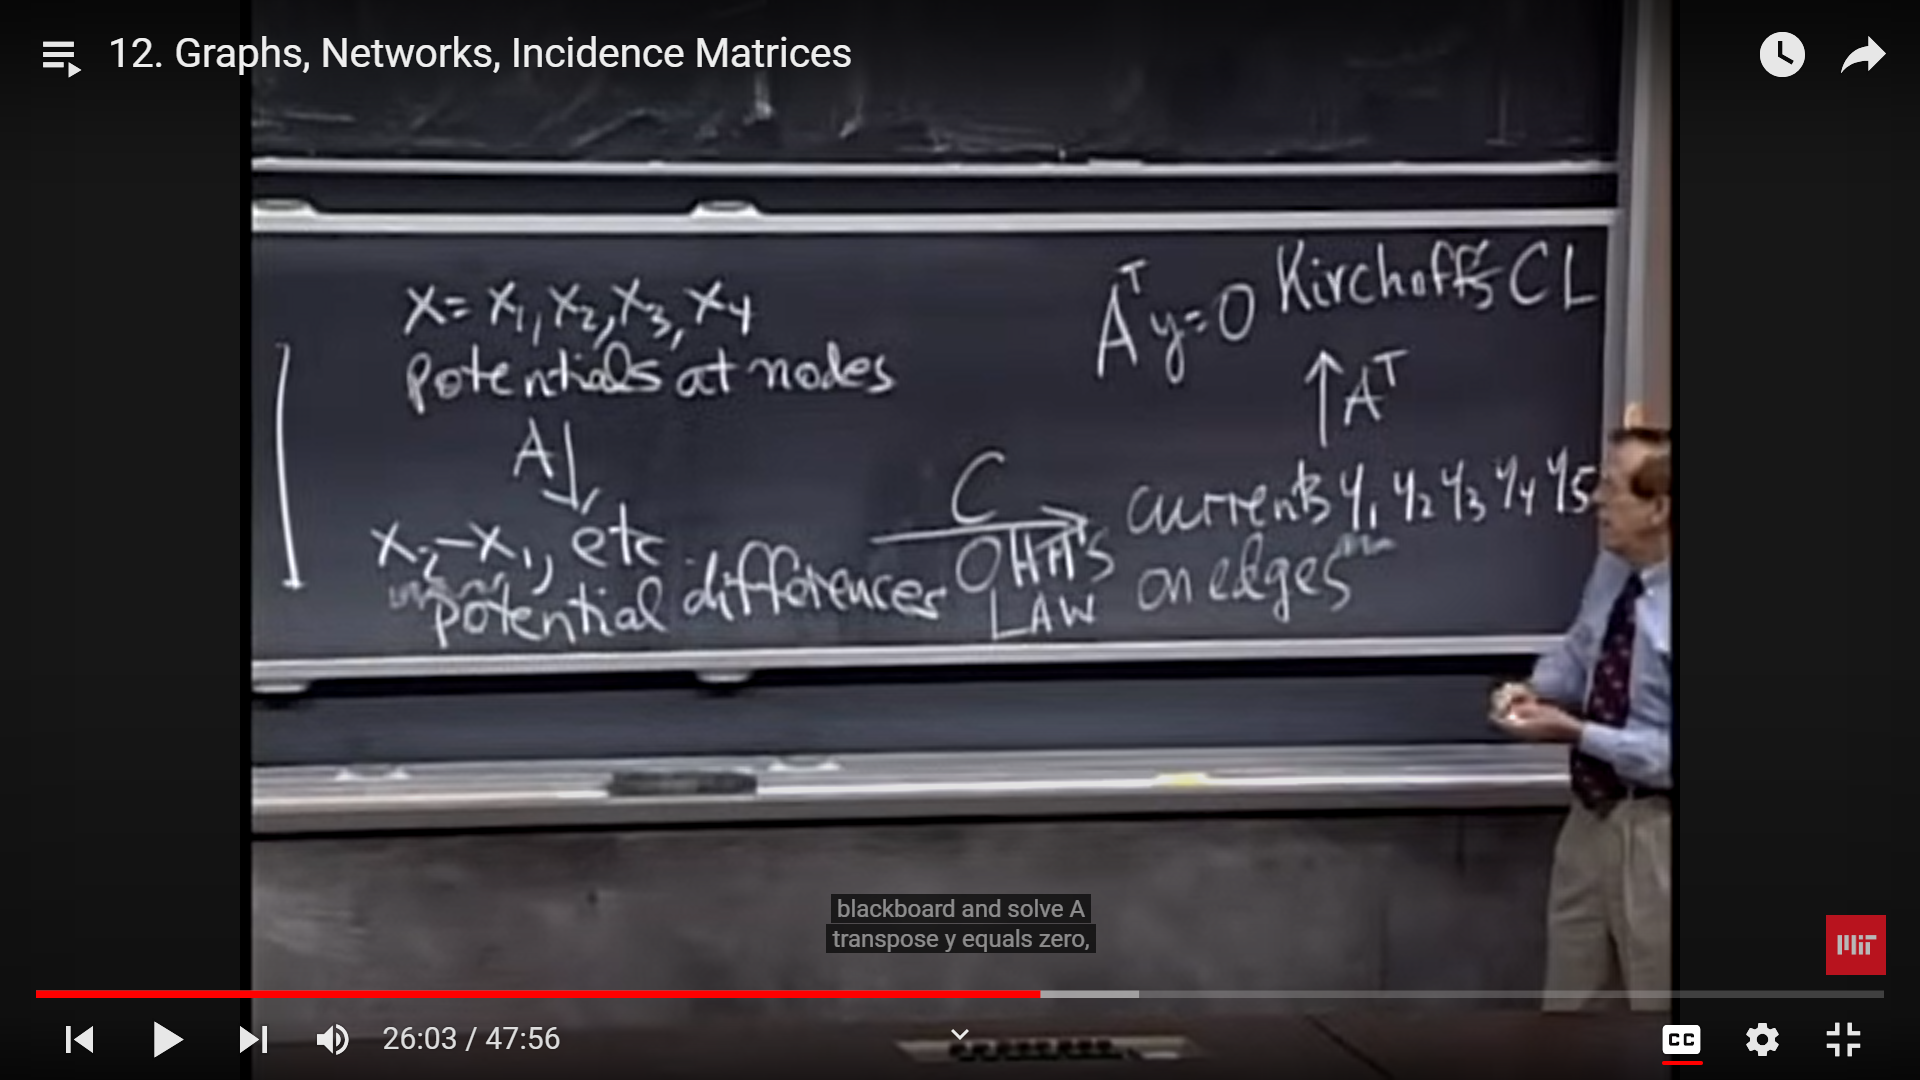 12. Graphs, Networks, Incidence Matrices
x = x1, x2, x3, x4
potentials at nodes
A
x2-x1, etc
potential differences
C
OHM'S
LAW
Aᵀy=0 Kirchoff's CL
Aᵀ
currents y1 y2 y3 y4 y5
on edges
blackboard and solve A
transpose y equals zero,
MIT
26:03 / 47:56
CC